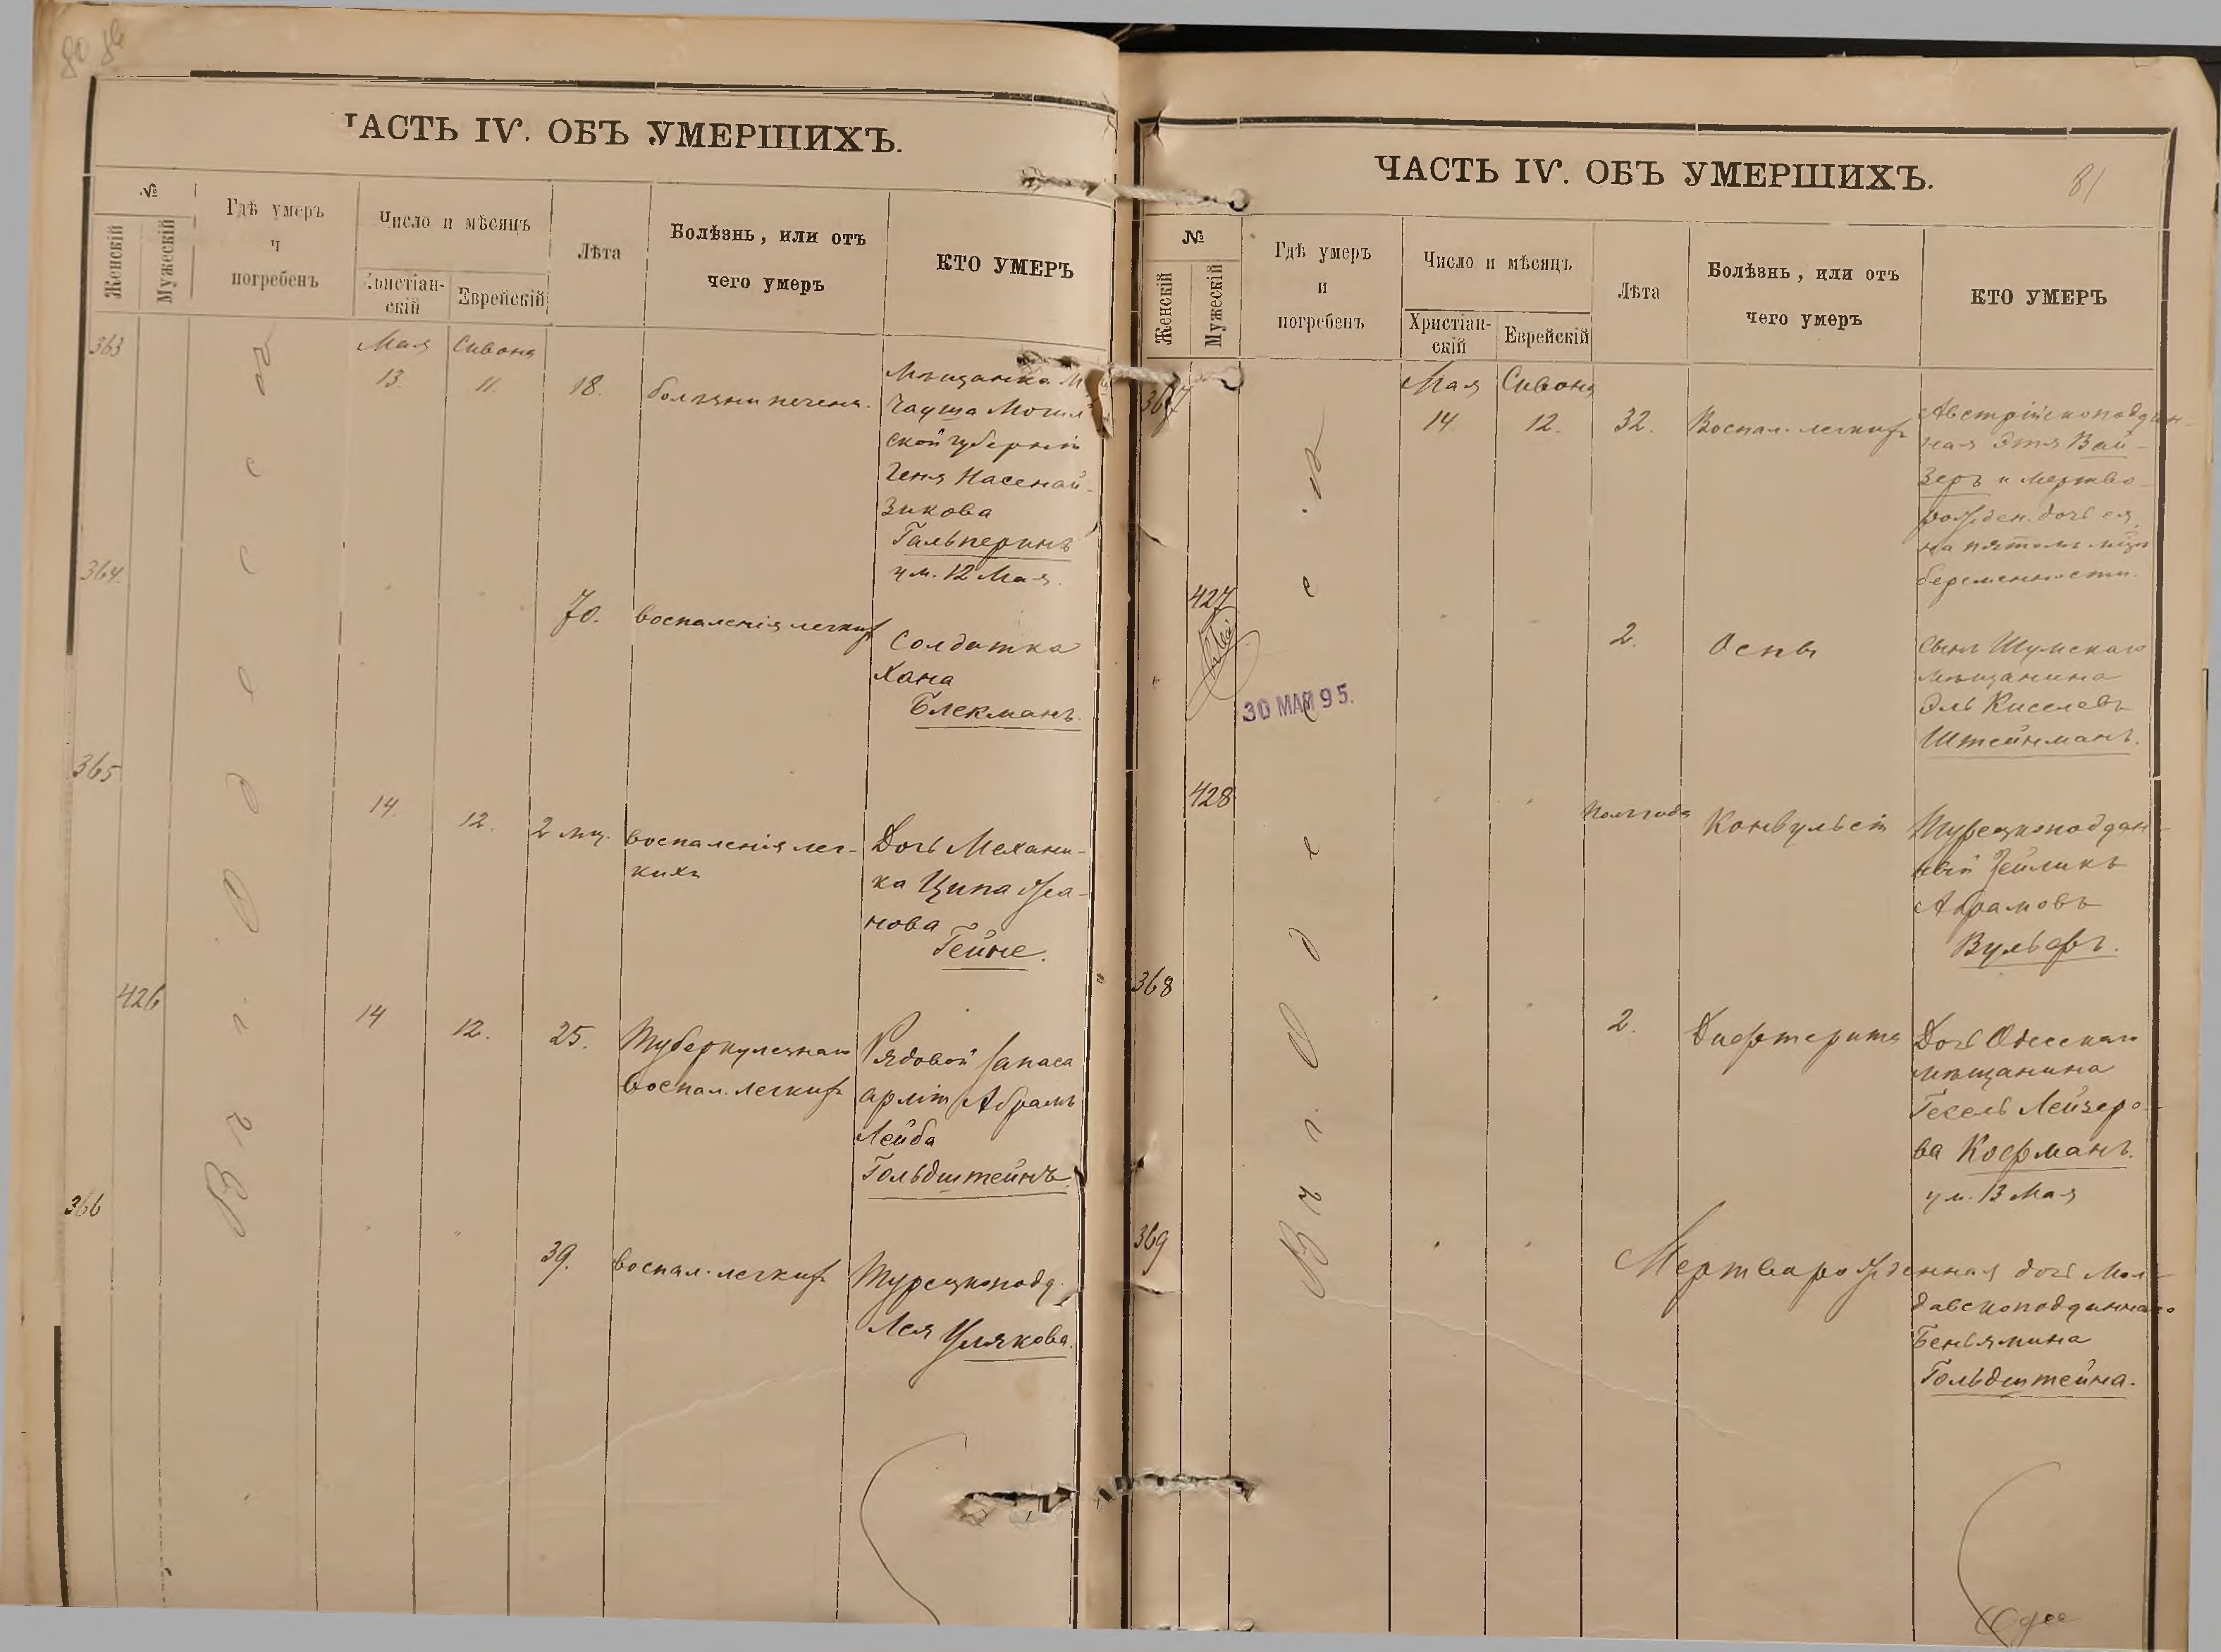 80
ЧАСТЬ IV. ОБЪ УМЕРШИХЪ.
№
Женскій
Мужескій
Гдѣ умеръ
и
погребенъ
Число и мѣсяцъ
Христіан-
скій
Еврейскій
Лѣта
Болѣзнь, или отъ
чего умеръ
КТО УМЕРЪ
В г. Одессѣ
363
Мая
Сивона
13.
11.
18.
болѣзни печени.
Мѣщанка
Чауша Могил
ской губерніи
Геня
Гальперинъ
ум. 12 Мая.
364.
70.
воспаленія легкихъ
Солдатка
Хана
Блекманъ.
365
14.
12.
2 мц.
воспаленія лег-
кихъ
Дочь Механи-
ка Ципа
нова
Гейне.
426
14
12.
25.
Туберкулезнаго
воспал. легкихъ
Рядовой запаса
арміи Абрамъ
Лейба
Гольдштейнъ.
366
39.
воспал. легкихъ
Турецкопод.
Лея Улякова.
ЧАСТЬ IV. ОБЪ УМЕРШИХЪ.
81
№
Женскій
Мужескій
Гдѣ умеръ
и
погребенъ
Число и мѣсяцъ
Христіан-
скій
Еврейскій
Лѣта
Болѣзнь, или отъ
чего умеръ
КТО УМЕРЪ
В г. Одессѣ
367
Мая
Сивона
14.
12.
32.
Воспал. легкихъ
Австрійскоподдан-
ная Этя Вай-
зеръ и мертво-
рожден. дочь ея,
на пятомъ мѣс.
беременности.
427
30 МАЯ 95.
2.
Оспы
Сынъ Шумскаго
мѣщанина
Эль Киселевъ
Штейнманъ.
428
Полгода
Конвульсіи
Турецкоподдан-
ный Зейликъ
Абрамовъ
Вульфъ.
368
2.
Дифтерита
Дочь Одесскаго
мѣщанина
Гесель Лейзеро-
ва Коfманъ.
ум. 13 Мая
369
Мертварожденная дочь Мол-
давскоподданнаго
Беньямина
Гольдштейна.
Одес